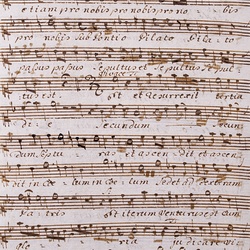 etiam pro nobis pro nobis pro no bis
pro nobis sub Pontio Pilato Pila to
passus passus Sepultus et Sepultus Sepul
tus est et Resurrexit tertia
di e Secundum
ras et ascendit et ascen
dit in coe lum in coe lum Sedet ad dexteram
Pa tris et iterum Venturus est cum
glo ria judicare vi